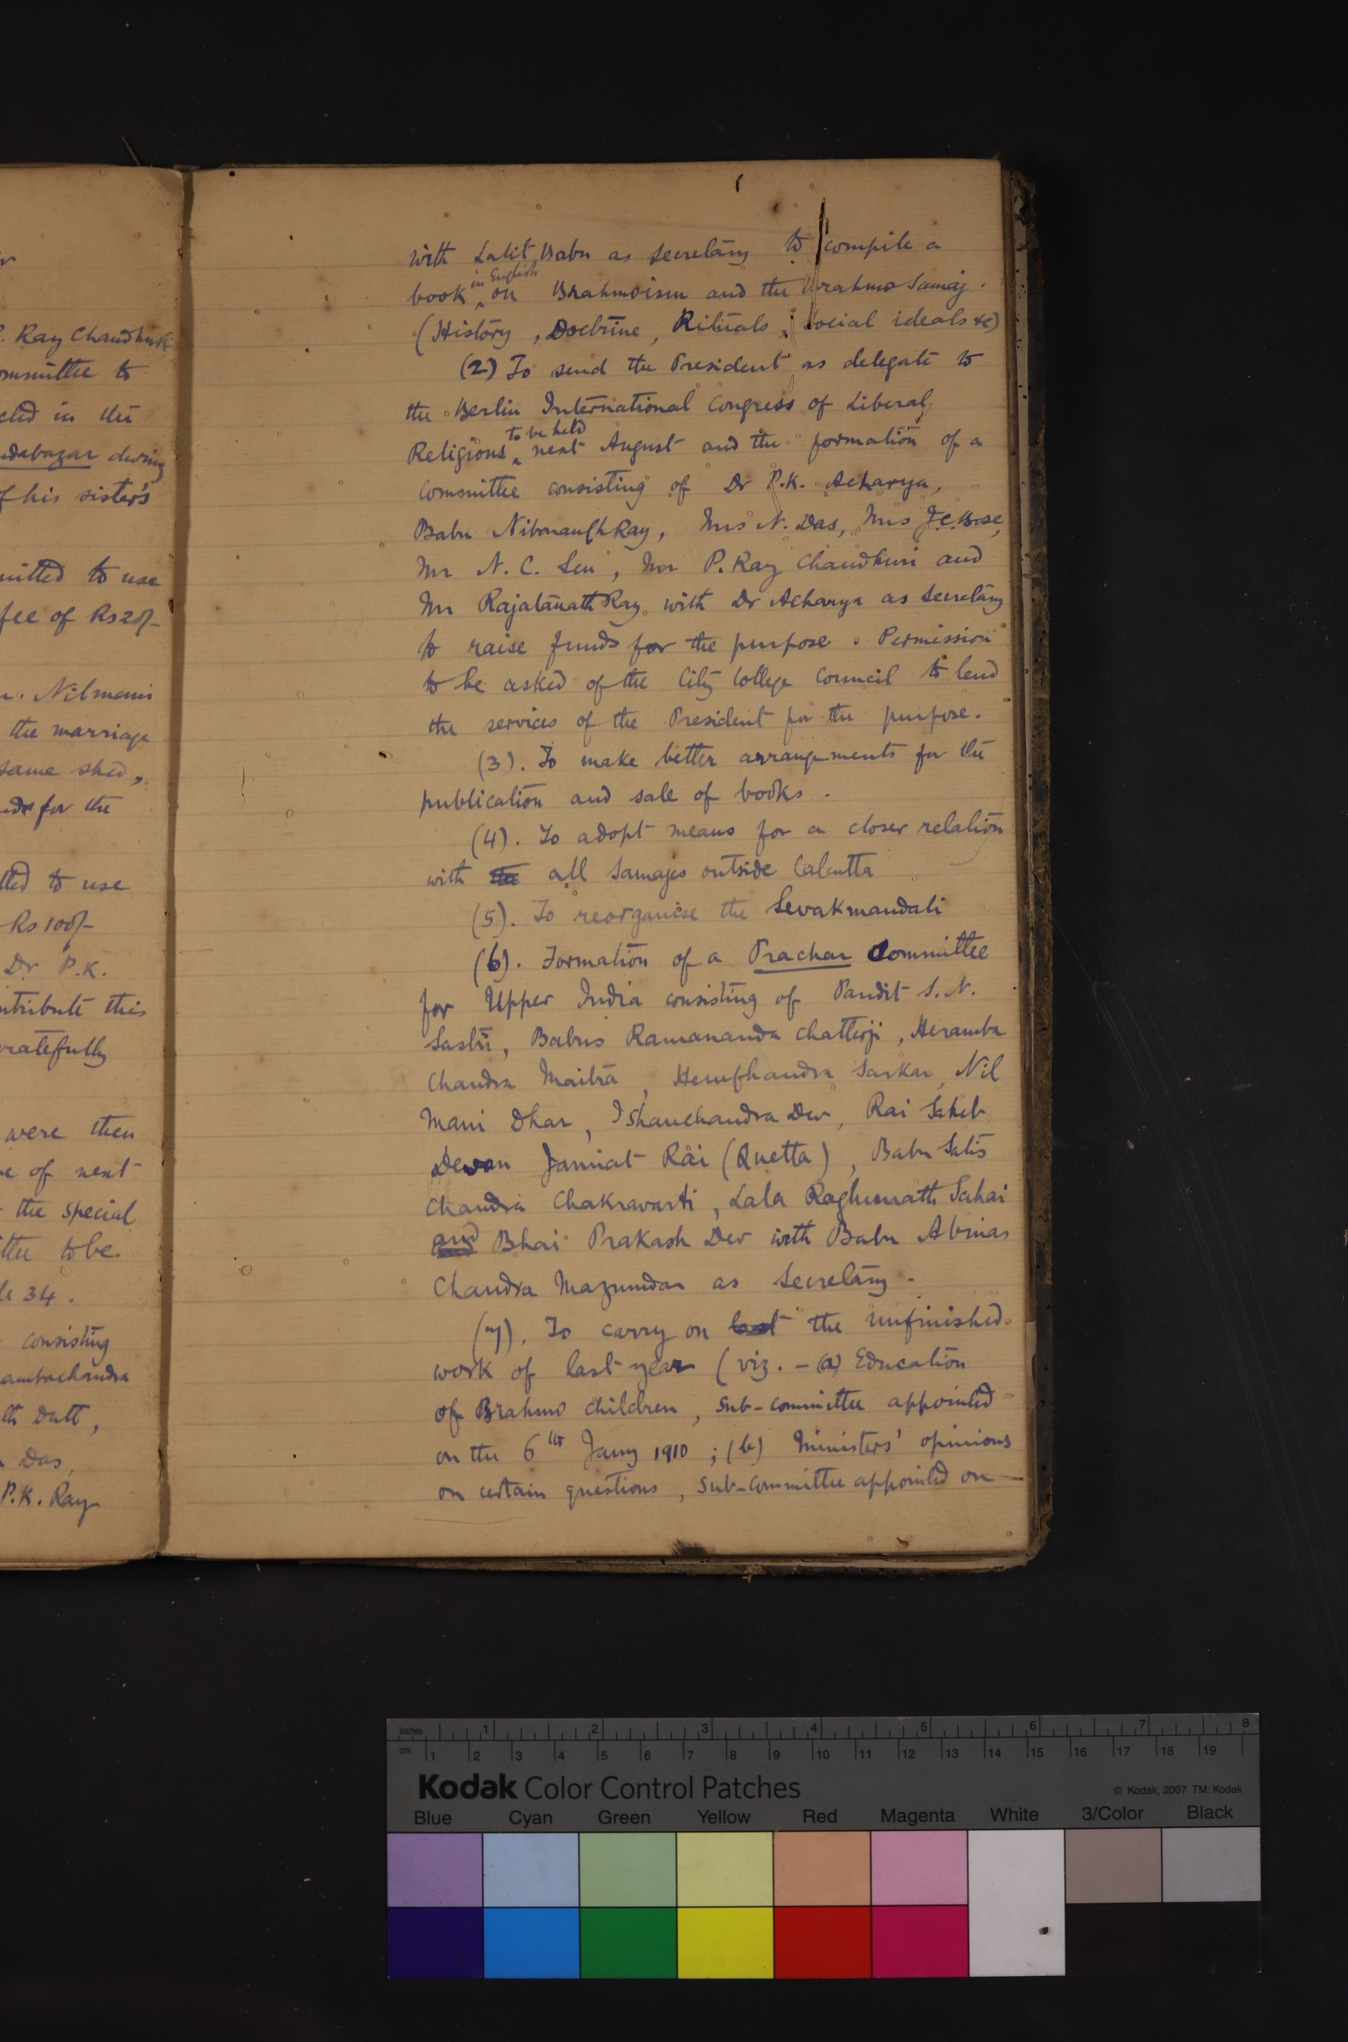 P. Ray Chaudhuri
committee to
cted in the
ndabazar during
f his sister's
mitted to use
fee of Rs 20/-
Nilmani
the marriage
same shed,
for the
tted to use
Rs 100/-
Dr P.K.
ntribute this
gratefully
were then
of next
the special
ttee to be
34.
consisting
ambachandra
th Dutt,
Das,
P.K. Ray
with Lalit Babu as Secretary to compile a
book in English on Brahmoism and the Brahmo Samaj.
(History, Doctrine, Rituals, Social ideals &c)
(2) To send the President as delegate to
the Berlin International Congress of Liberal
Religions to be held next August and the formation of a
committee consisting of Dr P.K. Acharya,
Babu Ray, Mrs N. Das, Mrs J.C. Bose,
Mr N. C. Sen, Mr P. Ray Chaudhuri and
Mr Rajatanath Ray with Dr Acharya as Secretary
to raise funds for the purpose. Permission
to be asked of the City College Council to lend
the services of the President for the purpose.
(3). To make better arrangements for the
publication and sale of books.
(4). To adopt means for a closer relation
with the all Samajes outside Calcutta
(5). To reorganise the Sevakmandali
(6). Formation of a Prachar Committee
for Upper India consisting of Pandit S. N.
Sastri, Babus Ramananda Chatterji, Heramba
Chandra Maitra, Hemchandra Sarkar, Nil
Mani Dhar, Ishanchandra Dev, Rai Saheb
Dewan Jamiat Rai (Quetta), Babu Satis
Chandra Chakravarti, Lala Raghunath Sahai
and Bhai Prakash Dev with Babu Abinas
Chandra Mazumdar as Secretary.
(7). To carry on last the unfinished
work of last year (viz. – (a) Education
of Brahmo children, sub-committee appointed
on the 6th Jany 1910; (b) Ministers' opinions
on certain questions, sub-committee appointed on
inches 1 2 3 4 5 6 7 8
cm 1 2 3 4 5 6 7 8 9 10 11 12 13 14 15 16 17 18 19
Kodak Color Control Patches © Kodak, 2007 TM: Kodak
Blue Cyan Green Yellow Red Magenta White 3/Color Black